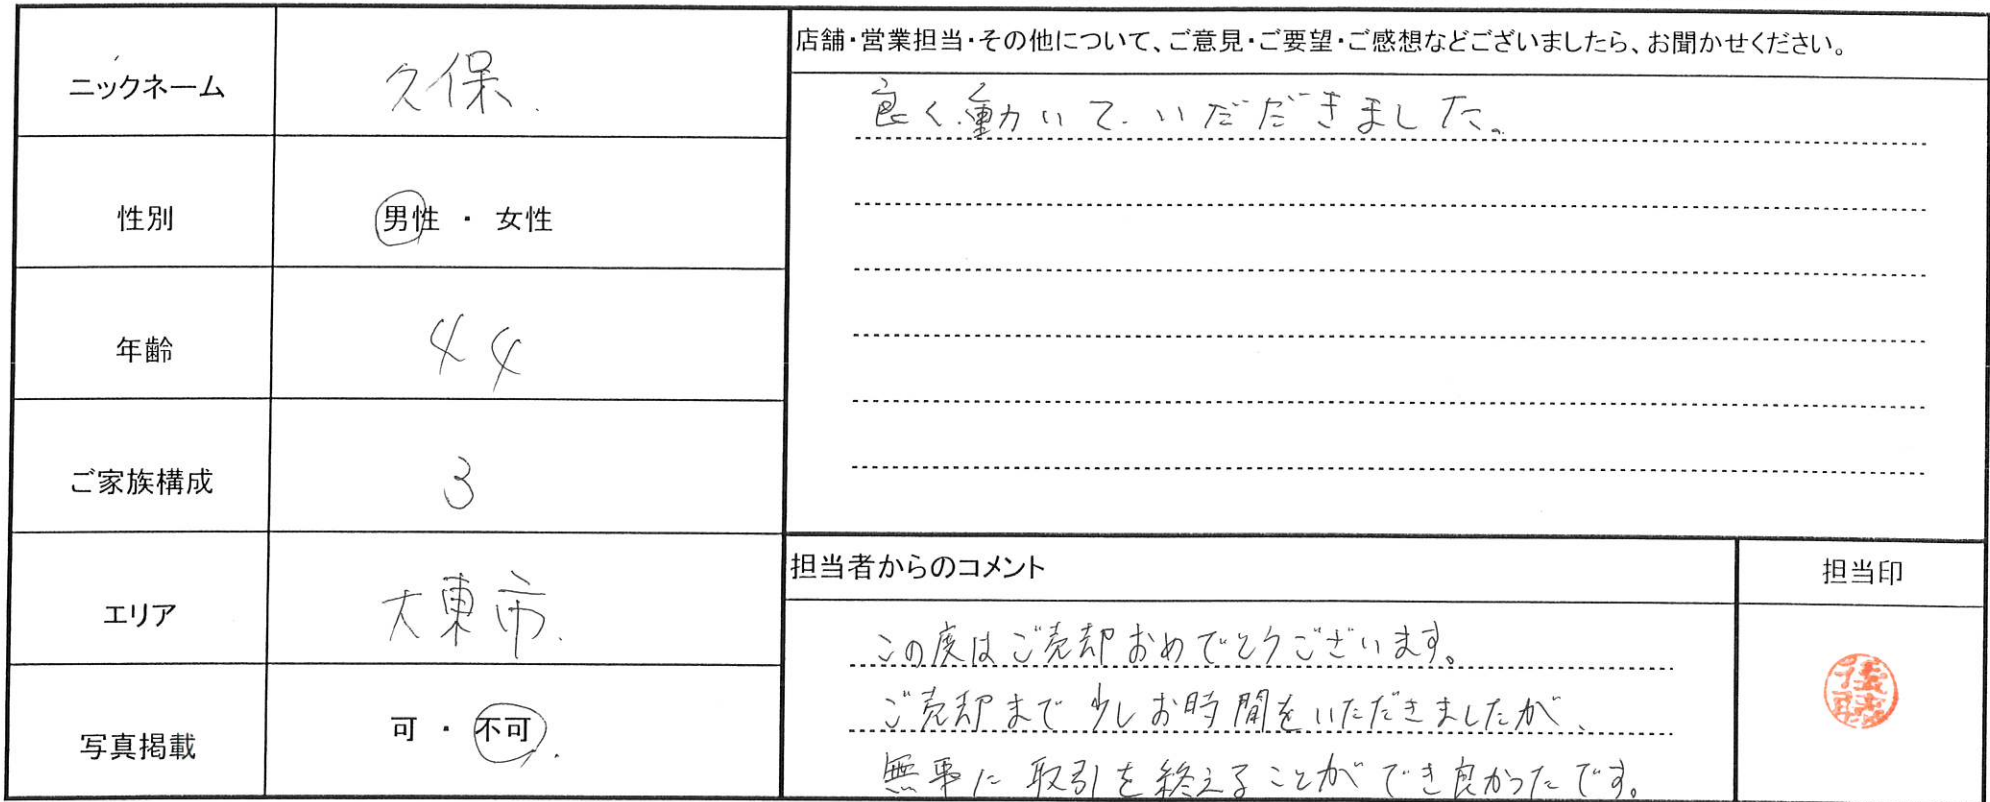 ニックネーム 久保.
性別 男性 ・ 女性
年齢 44
ご家族構成 3
エリア 大東市.
写真掲載 可 ・ 不可.
店舗・営業担当・その他について、ご意見・ご要望・ご感想などございましたら、お聞かせください。
良く動いていだだきました。
担当者からのコメント
この度はご売却おめでとうございます。
ご売却まで少しお時間をいただきましたが、
無事に取引を終えることができ良かったです。
担当印